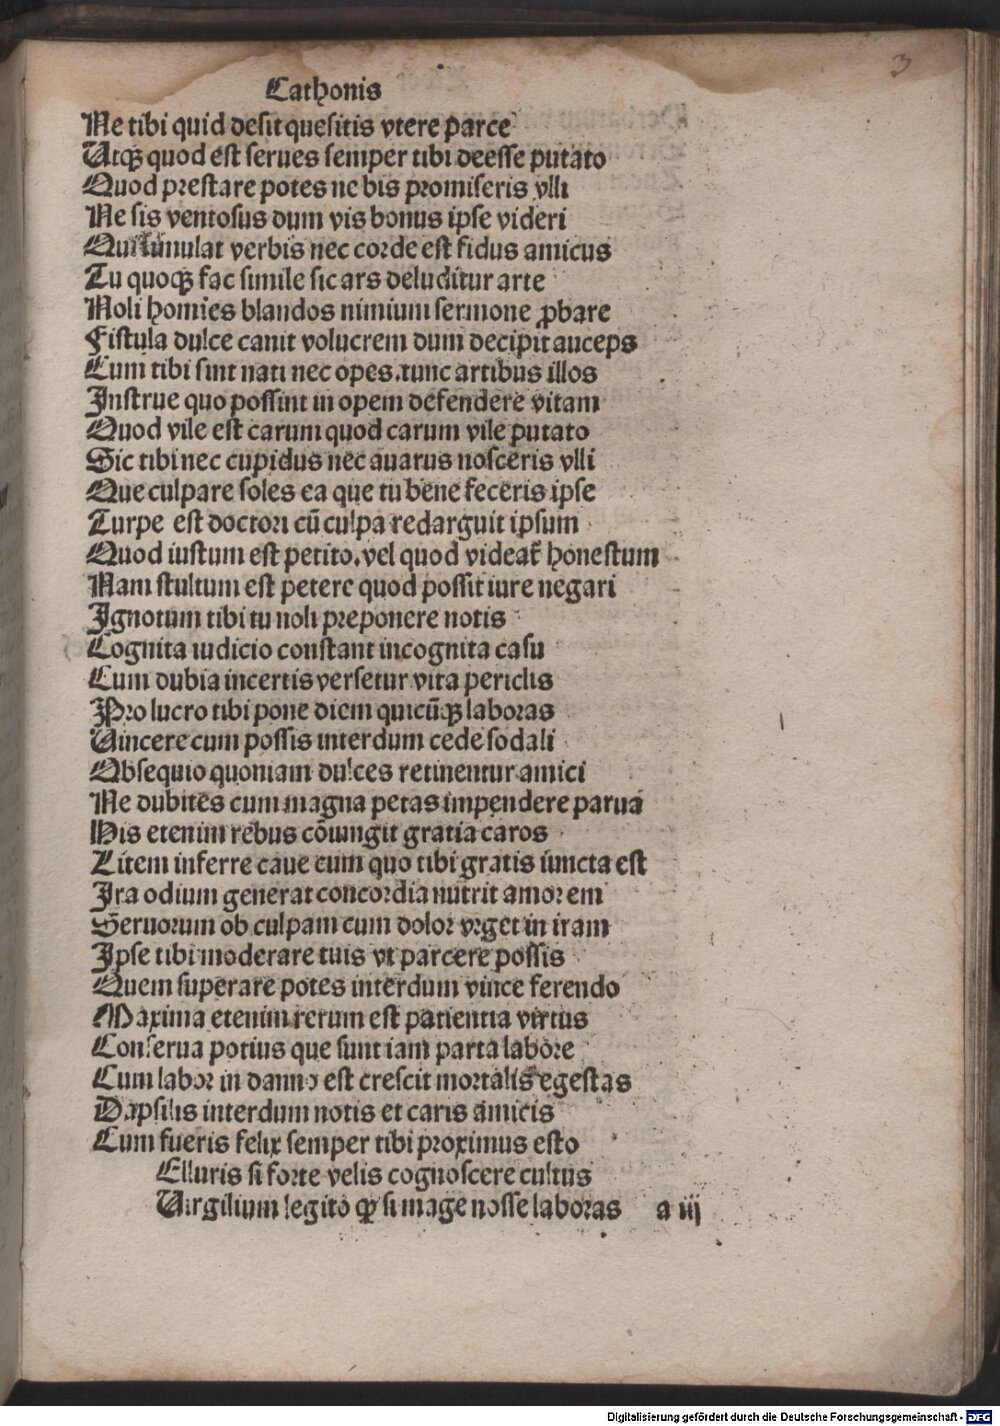 3
Cathonis
Ne tibi quid desit quesitis vtere parce
Utqꝫ quod est serues semper tibi deesse putato
Quod prestare potes ne bis promiseris vlli
Ne sis ventosus dum vis bonus ipse videri
Qui simulat verbis nec corde est fidus amicus
Tu quoqꝫ fac simile sic ars deluditur arte
Noli homīes blandos nimium sermone ꝓbare
Fistula dulce canit volucrem dum decipit auceps
Cum tibi sint nati nec opes.tunc artibus illos
Instrue quo possint in opem defendere vitam
Quod vile est carum quod carum vile putato
Sic tibi nec cupidus nec auarus nosceris vlli
Que culpare soles ea que tu bene feceris ipse
Turpe est doctori cū culpa redarguit ipsum
Quod iustum est petito.vel quod videat᷑ honestum
Nam stultum est petere quod possit iure negari
Ignotum tibi tu noli preponere notis
Cognita iudicio constant incognita casu
Cum dubia incertis versetur vita periclis
Pro lucro tibi pone diem quicūqꝫ laboras
Uincere cum possis interdum cede sodali
Obsequio quoniam dulces retinentur amici
Ne dubites cum magna petas impendere parua
His etenim rebus cōiungit gratia caros
Litem inferre caue cum quo tibi gratis iūncta est
Ira odium generat concordia nutrit amorem
Seruorum ob culpam cum dolor vrget in iram
Ipse tibi moderare tuis vt parcere possis
Quem superare potes interdum vince ferendo
Maxima etenim rerum est patientia virtus
Conserua potius que sunt iam parta labore
Cum labor in danno est crescit mortalis egestas
Dapsilis interdum notis et caris amicis
Cum fueris felix semper tibi proximus esto
Elluris si forte velis cognoscere cultus
Uirgilium legito ꝙ si mage nosse laboras a iij
Digitalisierung gefördert durch die Deutsche Forschungsgemeinschaft - DFG